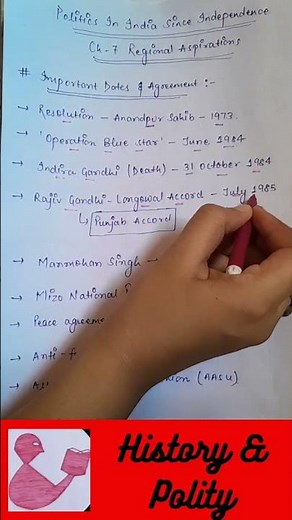 Politics In India Since Independence
Ch-7 Regional Aspirations
# Important Dates & Agreement :-
→ Resolution - Anandpur Sahib - 1973.
→ 'Operation Blue Star' - June 1984
→ Indira Gandhi (Death) - 31 October 1984
→ Rajiv Gandhi - Longowal Accord - July 1985
↳ Punjab Accord
→ Manmohan Singh →
→ Mizo National
→ Peace agreeme
→ Anti-f
→ (AASU)
History &
Polity